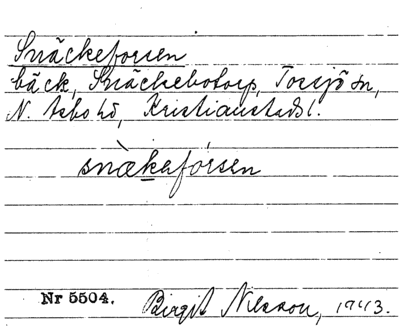 Snäckeforsen
bäck, Snäckebotorp, Torsjö sn,
N. Asbo hd, Kristianstads l.
snæ̀kefórsen
Nr 5504. Birgit Nilsson, 1943.